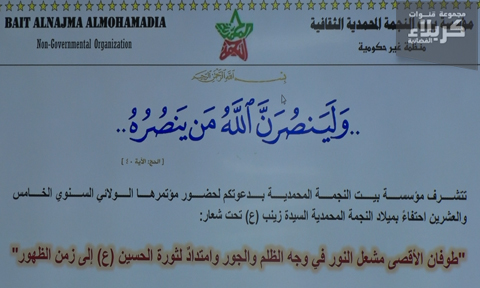 BAIT ALNAJMA ALMOHAMADIA
النجمة المحمدية الثقافية
Non-Governmental Organization
منظمة غير حكومية
مجموعة قنوات
كربلاء
الفضائية
..وَلَيَنصُرَنَّ ٱللَّهُ مَن يَنصُرُهُ..
تتشرف مؤسسة بيت النجمة المحمدية بدعوتكم لحضور مؤتمرها الولائي السنوي الخامس
والعشرين احتفاءً بميلاد النجمة المحمدية السيدة زينب (ع) تحت شعار:
"طوفان الأقصى مشعل النور في وجه الظلم والجور وامتدادٌ لثورة الحسين (ع) إلى زمن الظهور"